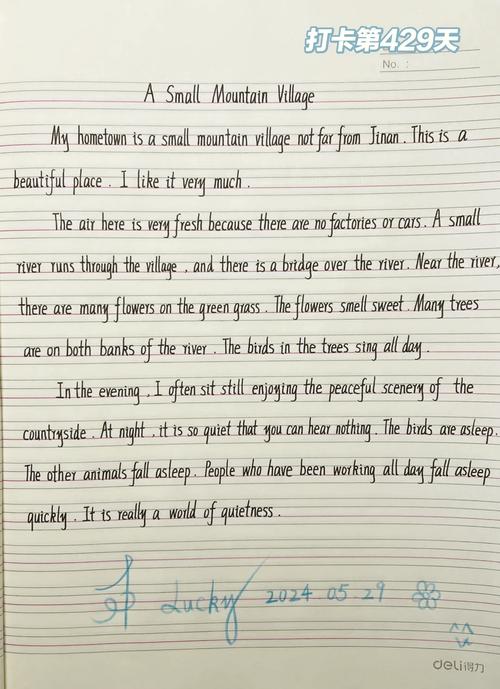 打卡第429天
No. :
A Small Mountain Village
My hometown is a small mountain village not far from Jinan. This is a
beautiful place. I like it very much.
The air here is very fresh because there are no factories or cars. A small
river runs through the village, and there is a bridge over the river. Near the river,
there are many flowers on the green grass. The flowers smell sweet. Many trees
are on both banks of the river. The birds in the trees sing all day.
In the evening, I often sit still enjoying the peaceful scenery of the
countryside. At night, it is so quiet that you can hear nothing. The birds are asleep.
The other animals fall asleep. People who have been working all day fall asleep
quickly. It is really a world of quietness.
Lucky 2024.05.29
deli得力